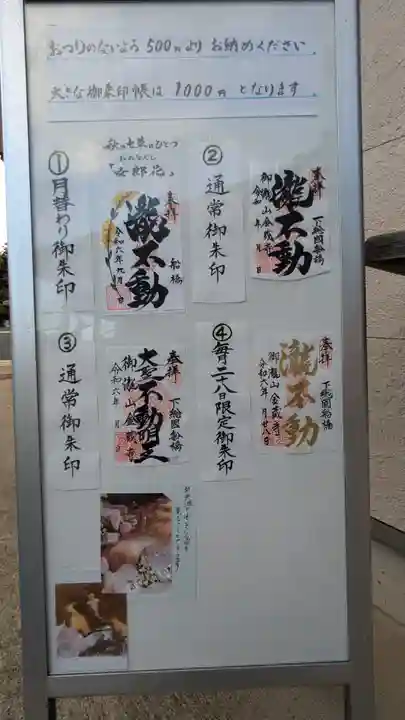 おつりのないよう500円より お納めください.
大きな御朱印帳は 1000円 となります.
秋の七草のひとつ
おみなえし
「女郎花」
①月替わり御朱印
奉拝
船橋
瀧不動
令和六年九月 日
②通常御朱印
奉拝
下総國船橋
瀧不動
御瀧山金蔵寺
令和六年 月 日
③通常御朱印
奉拝
下総國船橋
大聖不動明王
御瀧山金蔵寺
令和六年 月 日
④毎月二十八日限定御朱印
奉拝
下総國船橋
瀧不動
御瀧山金蔵寺
令和六年 月廿八日